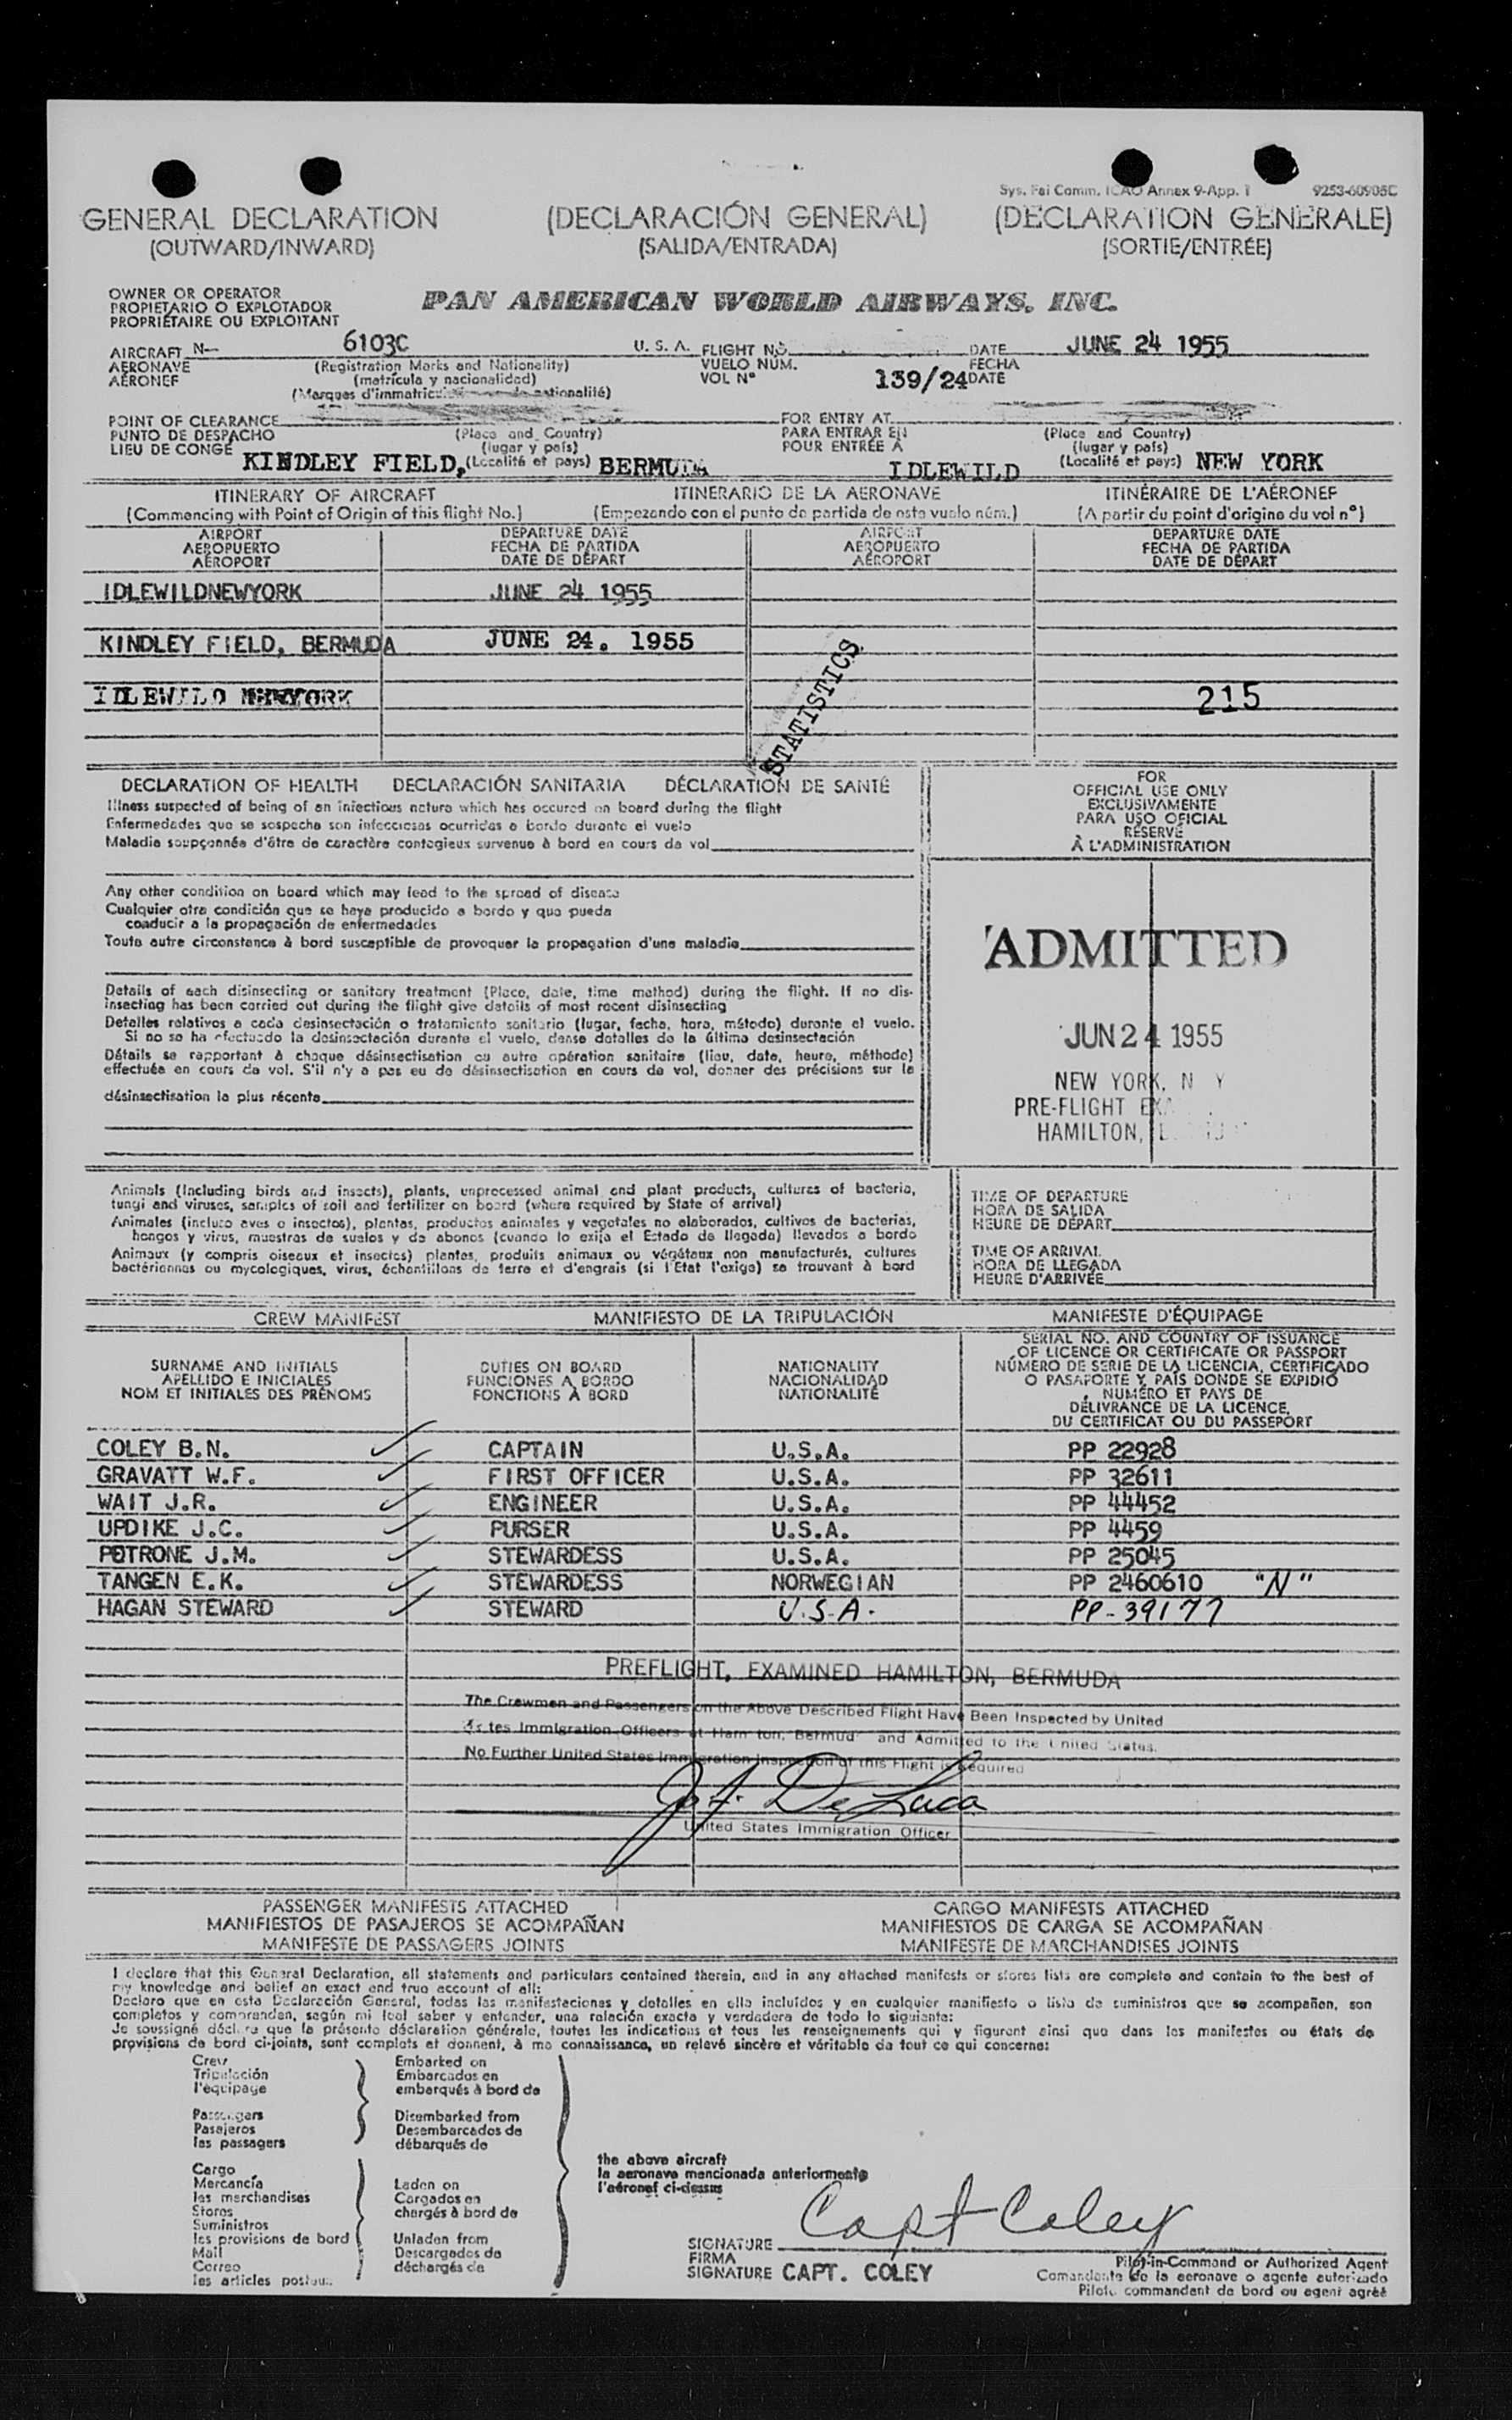 Sys. Fai Comm. ICAO Annex 9-App. 1 9253-60905C
GENERAL DECLARATION (DECLARACIÓN GENERAL) (DECLARATION GÉNÉRALE)
(OUTWARD/INWARD) (SALIDA/ENTRADA) (SORTIE/ENTRÉE)
OWNER OR OPERATOR
PROPIETARIO O EXPLOTADOR
PROPRIÉTAIRE OU EXPLOITANT
PAN AMERICAN WORLD AIRWAYS, INC.
AIRCRAFT N- 6103C U. S. A. FLIGHT NO. DATE JUNE 24 1955
AERONAVE (Registration Marks and Nationality) VUELO NÚM. FECHA
AÉRONEF (matrícula y nacionalidad) VOL Nº 139/24 DATE
(Marques d'immatric nationalité)
POINT OF CLEARANCE FOR ENTRY AT
PUNTO DE DESPACHO (Place and Country) PARA ENTRAR EN (Place and Country)
LIEU DE CONGÉ (lugar y país) POUR ENTRÉE À (lugar y país)
KINDLEY FIELD, (Localité et pays) BERMUDA IDLEWILD (Localité et pays) NEW YORK
ITINERARY OF AIRCRAFT ITINERARIO DE LA AERONAVE ITINÉRAIRE DE L'AÉRONEF
(Commencing with Point of Origin of this flight No.) (Empezando con el punto de partida de este vuelo núm.) (A partir du point d'origine du vol nº)
AIRPORT DEPARTURE DATE AIRPORT DEPARTURE DATE
AEROPUERTO FECHA DE PARTIDA AEROPUERTO FECHA DE PARTIDA
AÉROPORT DATE DE DÉPART AÉROPORT DATE DE DÉPART
IDLEWILDNEWYORK JUNE 24 1955
KINDLEY FIELD, BERMUDA JUNE 24. 1955
STATISTICS
IDLEWILD NEWYORK 215
DECLARATION OF HEALTH DECLARACIÓN SANITARIA DÉCLARATION DE SANTÉ
Illness suspected of being of an infectious nature which has occured on board during the flight
Enfermedades que se sospecha son infecciosas ocurridas a bordo durante el vuelo
Maladie soupçonnée d'être de caractère contagieux survenue à bord en cours de vol
Any other condition on board which may lead to the spread of disease
Cualquier otra condición que se haya producido a bordo y que pueda
conducir a la propagación de enfermedades
Toute autre circonstance à bord susceptible de provoquer la propagation d'une maladie
Details of each disinsecting or sanitary treatment (Place, date, time method) during the flight. If no dis-
insecting has been carried out during the flight give details of most recent disinsecting
Detalles relativos a cada desinsectación o tratamiento sanitario (lugar, fecha, hora, método) durante el vuelo.
Si no se ha efectuado la desinsectación durante el vuelo, dense detalles de la última desinsectación
Détails se rapportant à chaque désinsectisation ou autre opération sanitaire (lieu, date, heure, méthode)
effectuée en cours de vol. S'il n'y a pas eu de désinsectisation en cours de vol, donner des précisions sur la
désinsectisation la plus récente
FOR
OFFICIAL USE ONLY
EXCLUSIVAMENTE
PARA USO OFICIAL
RÉSERVÉ
À L'ADMINISTRATION
ADMITTED
JUN 24 1955
NEW YORK, N Y
PRE-FLIGHT
HAMILTON,
Animals (Including birds and insects), plants, unprocessed animal and plant products, cultures of bacteria,
fungi and viruses, samples of soil and fertilizer on board (where required by State of arrival)
Animales (incluso aves o insectos), plantas, productos animales y vegetales no elaborados, cultivos de bacterias,
hongos y virus, muestras de suelos y de abonos (cuando lo exija el Estado de llegada) llevados a bordo
Animaux (y compris oiseaux et insectes) plantes, produits animaux ou végétaux non manufacturés, cultures
bactériennes ou mycologiques, virus, échantillons de terre et d'engrais (si l'Etat l'exige) se trouvant à bord
TIME OF DEPARTURE
HORA DE SALIDA
HEURE DE DÉPART
TIME OF ARRIVAL
HORA DE LLEGADA
HEURE D'ARRIVÉE
CREW MANIFEST MANIFIESTO DE LA TRIPULACIÓN MANIFESTE D'ÉQUIPAGE
SURNAME AND INITIALS
APELLIDO E INICIALES
NOM ET INITIALES DES PRÉNOMS
DUTIES ON BOARD
FUNCIONES A BORDO
FONCTIONS À BORD
NATIONALITY
NACIONALIDAD
NATIONALITÉ
SERIAL NO. AND COUNTRY OF ISSUANCE
OF LICENCE OR CERTIFICATE OR PASSPORT
NÚMERO DE SERIE DE LA LICENCIA, CERTIFICADO
O PASAPORTE Y PAÍS DONDE SE EXPIDIÓ
NUMÉRO ET PAYS DE
DÉLIVRANCE DE LA LICENCE,
DU CERTIFICAT OU DU PASSEPORT
COLEY B.N. CAPTAIN U.S.A. PP 22928
GRAVATT W.F. FIRST OFFICER U.S.A. PP 32611
WAIT J.R. ENGINEER U.S.A. PP 44452
UPDIKE J.C. PURSER U.S.A. PP 4459
PETRONE J.M. STEWARDESS U.S.A. PP 25045
TANGEN E.K. STEWARDESS NORWEGIAN PP 2460610 "N"
HAGAN STEWARD STEWARD U.S.A. PP-39177
PREFLIGHT, EXAMINED HAMILTON, BERMUDA
The Crewmen and Passengers on the Above Described Flight Have Been Inspected by United
tes Immigration Officers at Ham ton, Bermud and Admitted to the United States.
No Further United States Immigration Inspection of this Flight is Required
J. A. DeLuca
United States Immigration Officer
PASSENGER MANIFESTS ATTACHED CARGO MANIFESTS ATTACHED
MANIFIESTOS DE PASAJEROS SE ACOMPAÑAN MANIFIESTOS DE CARGA SE ACOMPAÑAN
MANIFESTE DE PASSAGERS JOINTS MANIFESTE DE MARCHANDISES JOINTS
I declare that this General Declaration, all statements and particulars contained therein, and in any attached manifests or stores lists are complete and contain to the best of
my knowledge and belief an exact and true account of all:
Declaro que en esta Declaración General, todas las manifestaciones y detalles en ella incluídos y en cualquier manifiesto o lista de suministros que se acompañen, son
completos y comprenden, según mi leal saber y entender, una relación exacta y verdadera de todo lo siguiente:
Je soussigné déclare que la présente déclaration générale, toutes les indications et tous les renseignements qui y figurent ainsi que dans les manifestes ou états de
provisions de bord ci-joints, sont complets et donnent, à ma connaissance, un relevé sincère et véritable de tout ce qui concerne:
Crew Embarked on
Tripulación Embarcados en
l'équipage embarqués à bord de
Passengers Disembarked from
Pasajeros Desembarcados de
les passagers débarqués de
Cargo
Mercancía Laden on
les marchandises Cargados en
Stores chargés à bord de
Suministros
les provisions de bord Unladen from
Mail Descargados de
Correo déchargés de
les articles postaux
the above aircraft
la aeronave mencionada anteriormente
l'aéronef ci-dessus
SIGNATURE Capt Coley
FIRMA
SIGNATURE CAPT. COLEY
Pilot-in-Command or Authorized Agent
Comandante de la aeronave o agente autorizado
Pilote commandant de bord ou agent agréé